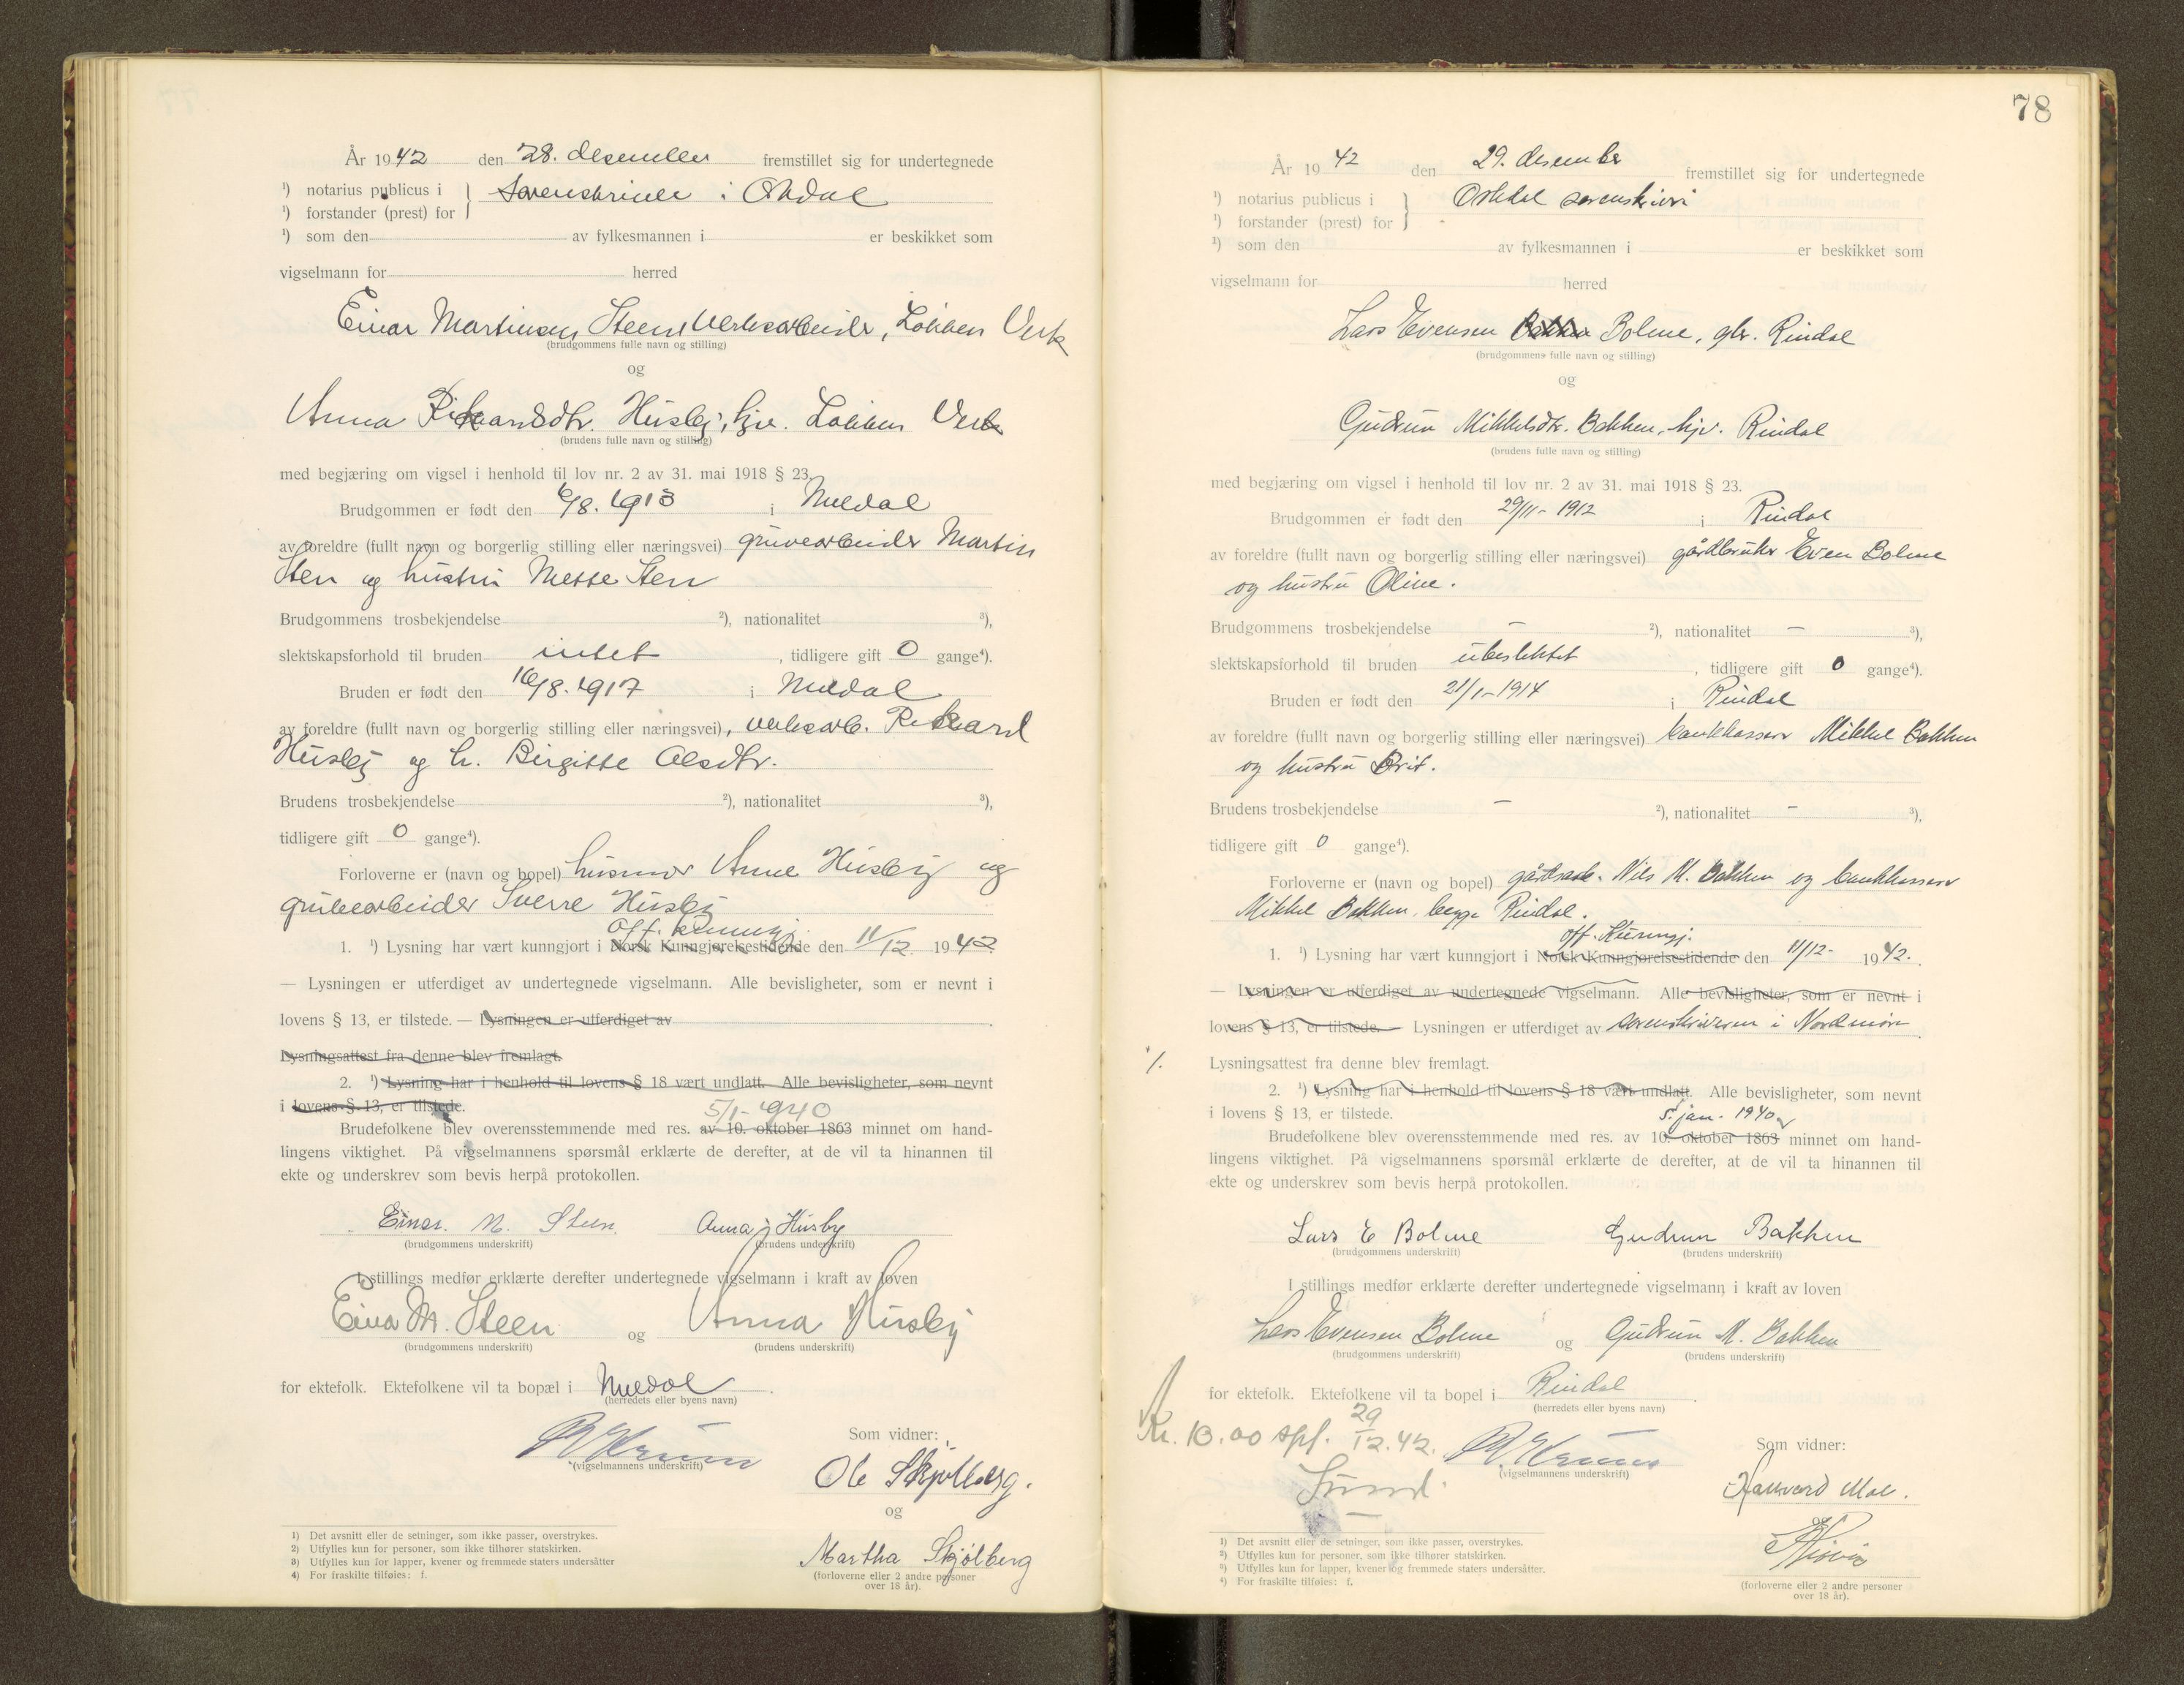 År 1942 den 28. desember fremstillet sig for undertegnede
¹) notarius publicus i } Sorenskriver i Orkdal
¹) forstander (prest) for
¹) som den av fylkesmannen i er beskikket som
vigselmann for herred
Einar Martinsen Steen, verksarbeider, Løkken Verk
(brudgommens fulle navn og stilling)
og
Anna Rikardsdtr. Husby, hjv. Løkken Verk
(brudens fulle navn og stilling)
med begjæring om vigsel i henhold til lov nr. 2 av 31. mai 1918 § 23.
Brudgommen er født den 6/8. 1913 i Meldal
av foreldre (fullt navn og borgerlig stilling eller næringsvei) gruvearbeider Martin
Sten og hustru Mette Sten
Brudgommens trosbekjendelse ²), nationalitet ³),
slektskapsforhold til bruden intet , tidligere gift 0 gange⁴).
Bruden er født den 16/8. 1917 i Meldal
av foreldre (fullt navn og borgerlig stilling eller næringsvei), verksarb. Rikard
Husby og h. Birgitte Olsdtr.
Brudens trosbekjendelse ²), nationalitet ³),
tidligere gift 0 gange⁴).
Forloverne er (navn og bopel) husmor Anne Husby og
gruvearbeider Sverre Husby
off. kunngj.
1. ¹) Lysning har vært kunngjort i Norsk Kunngjørelsestidende den 11/12. 1942.
— Lysningen er utferdiget av undertegnede vigselmann. Alle bevisligheter, som er nevnt i
lovens § 13, er tilstede. — Lysningen er utferdiget av
Lysningsattest fra denne blev fremlagt.
2. ¹) Lysning har i henhold til lovens § 18 vært undlatt. Alle bevisligheter, som nevnt
i lovens § 13, er tilstede.
5/1-1940
Brudefolkene blev overensstemmende med res. av 10. oktober 1863 minnet om hand-
lingens viktighet. På vigselmannens spørsmål erklærte de derefter, at de vil ta hinannen til
ekte og underskrev som bevis herpå protokollen.
Einar. M. Steen. Anna Husby
(brudgommens underskrift) (brudens underskrift)
I stillings medfør erklærte derefter undertegnede vigselmann i kraft av loven
Einar M. Steen og Anna Husby
(brudgommens underskrift) (brudens underskrift)
for ektefolk. Ektefolkene vil ta bopæl i Meldal.
(herredets eller byens navn)
Som vidner:
(vigselmannens underskrift)
Ole Skjølberg.
og
Martha Skjølberg
(forloverne eller 2 andre personer
over 18 år).
1) Det avsnitt eller de setninger, som ikke passer, overstrykes.
2) Utfylles kun for personer, som ikke tilhører statskirken.
3) Utfylles kun for lapper, kvener og fremmede staters undersåtter
4) For fraskilte tilføies: f.
78
År 1942 den 29. desember fremstillet sig for undertegnede
¹) notarius publicus i } Orkdal sorenskriveri
¹) forstander (prest) for
¹) som den av fylkesmannen i er beskikket som
vigselmann for herred
Lars Evensen Bakken Bolme, gbr. Rindal
(brudgommens fulle navn og stilling)
og
Gudrun Mikkelsdtr. Bakken, hjv. Rindal
(brudens fulle navn og stilling)
med begjæring om vigsel i henhold til lov nr. 2 av 31. mai 1918 § 23.
Brudgommen er født den 29/11-1912 i Rindal
av foreldre (fullt navn og borgerlig stilling eller næringsvei) gårdbruker Even Bolme
og hustru Oline.
Brudgommens trosbekjendelse — ²), nationalitet — ³),
slektskapsforhold til bruden ubeslektet , tidligere gift 0 gange⁴).
Bruden er født den 21/1-1914 i Rindal
av foreldre (fullt navn og borgerlig stilling eller næringsvei) bankkasserer Mikkel Bakken
og hustru Brit.
Brudens trosbekjendelse — ²), nationalitet — ³),
tidligere gift 0 gange⁴).
Forloverne er (navn og bopel) gårdsarb. Nils M. Bakken og bankkasserer
Mikkel Bakken, begge Rindal.
off. Kunngj.
1. ¹) Lysning har vært kunngjort i Norsk Kunngjørelsestidende den 11/12- 1942.
— Lysningen er utferdiget av undertegnede vigselmann. Alle bevisligheter, som er nevnt i
lovens § 13, er tilstede. — Lysningen er utferdiget av sorenskriveren i Nordmøre
Lysningsattest fra denne blev fremlagt.
2. ¹) Lysning har i henhold til lovens § 18 vært undlatt. Alle bevisligheter, som nevnt
i lovens § 13, er tilstede.
5. jan. 1940
Brudefolkene blev overensstemmende med res. av 10. oktober 1863 minnet om hand-
lingens viktighet. På vigselmannens spørsmål erklærte de derefter, at de vil ta hinannen til
ekte og underskrev som bevis herpå protokollen.
Lars E Bolme Gudrun Bakken
(brudgommens underskrift) (brudens underskrift)
I stillings medfør erklærte derefter undertegnede vigselmann i kraft av loven
Lars Evensen Bolme og Gudrun M. Bakken
(brudgommens underskrift) (brudens underskrift)
for ektefolk. Ektefolkene vil ta bopel i Rindal.
(herredets eller byens navn)
Kr. 13.00 spf. 29/12.42.
Som vidner:
(vigselmannens underskrift)
Hallvard Moe.
og
(forloverne eller 2 andre personer
over 18 år).
¹) Det avsnitt eller de setninger, som ikke passer, overstrykes.
²) Utfylles kun for personer, som ikke tilhører statskirken.
³) Utfylles kun for lapper, kvener og fremmede staters undersåtter.
⁴) For fraskilte tilføies: f.